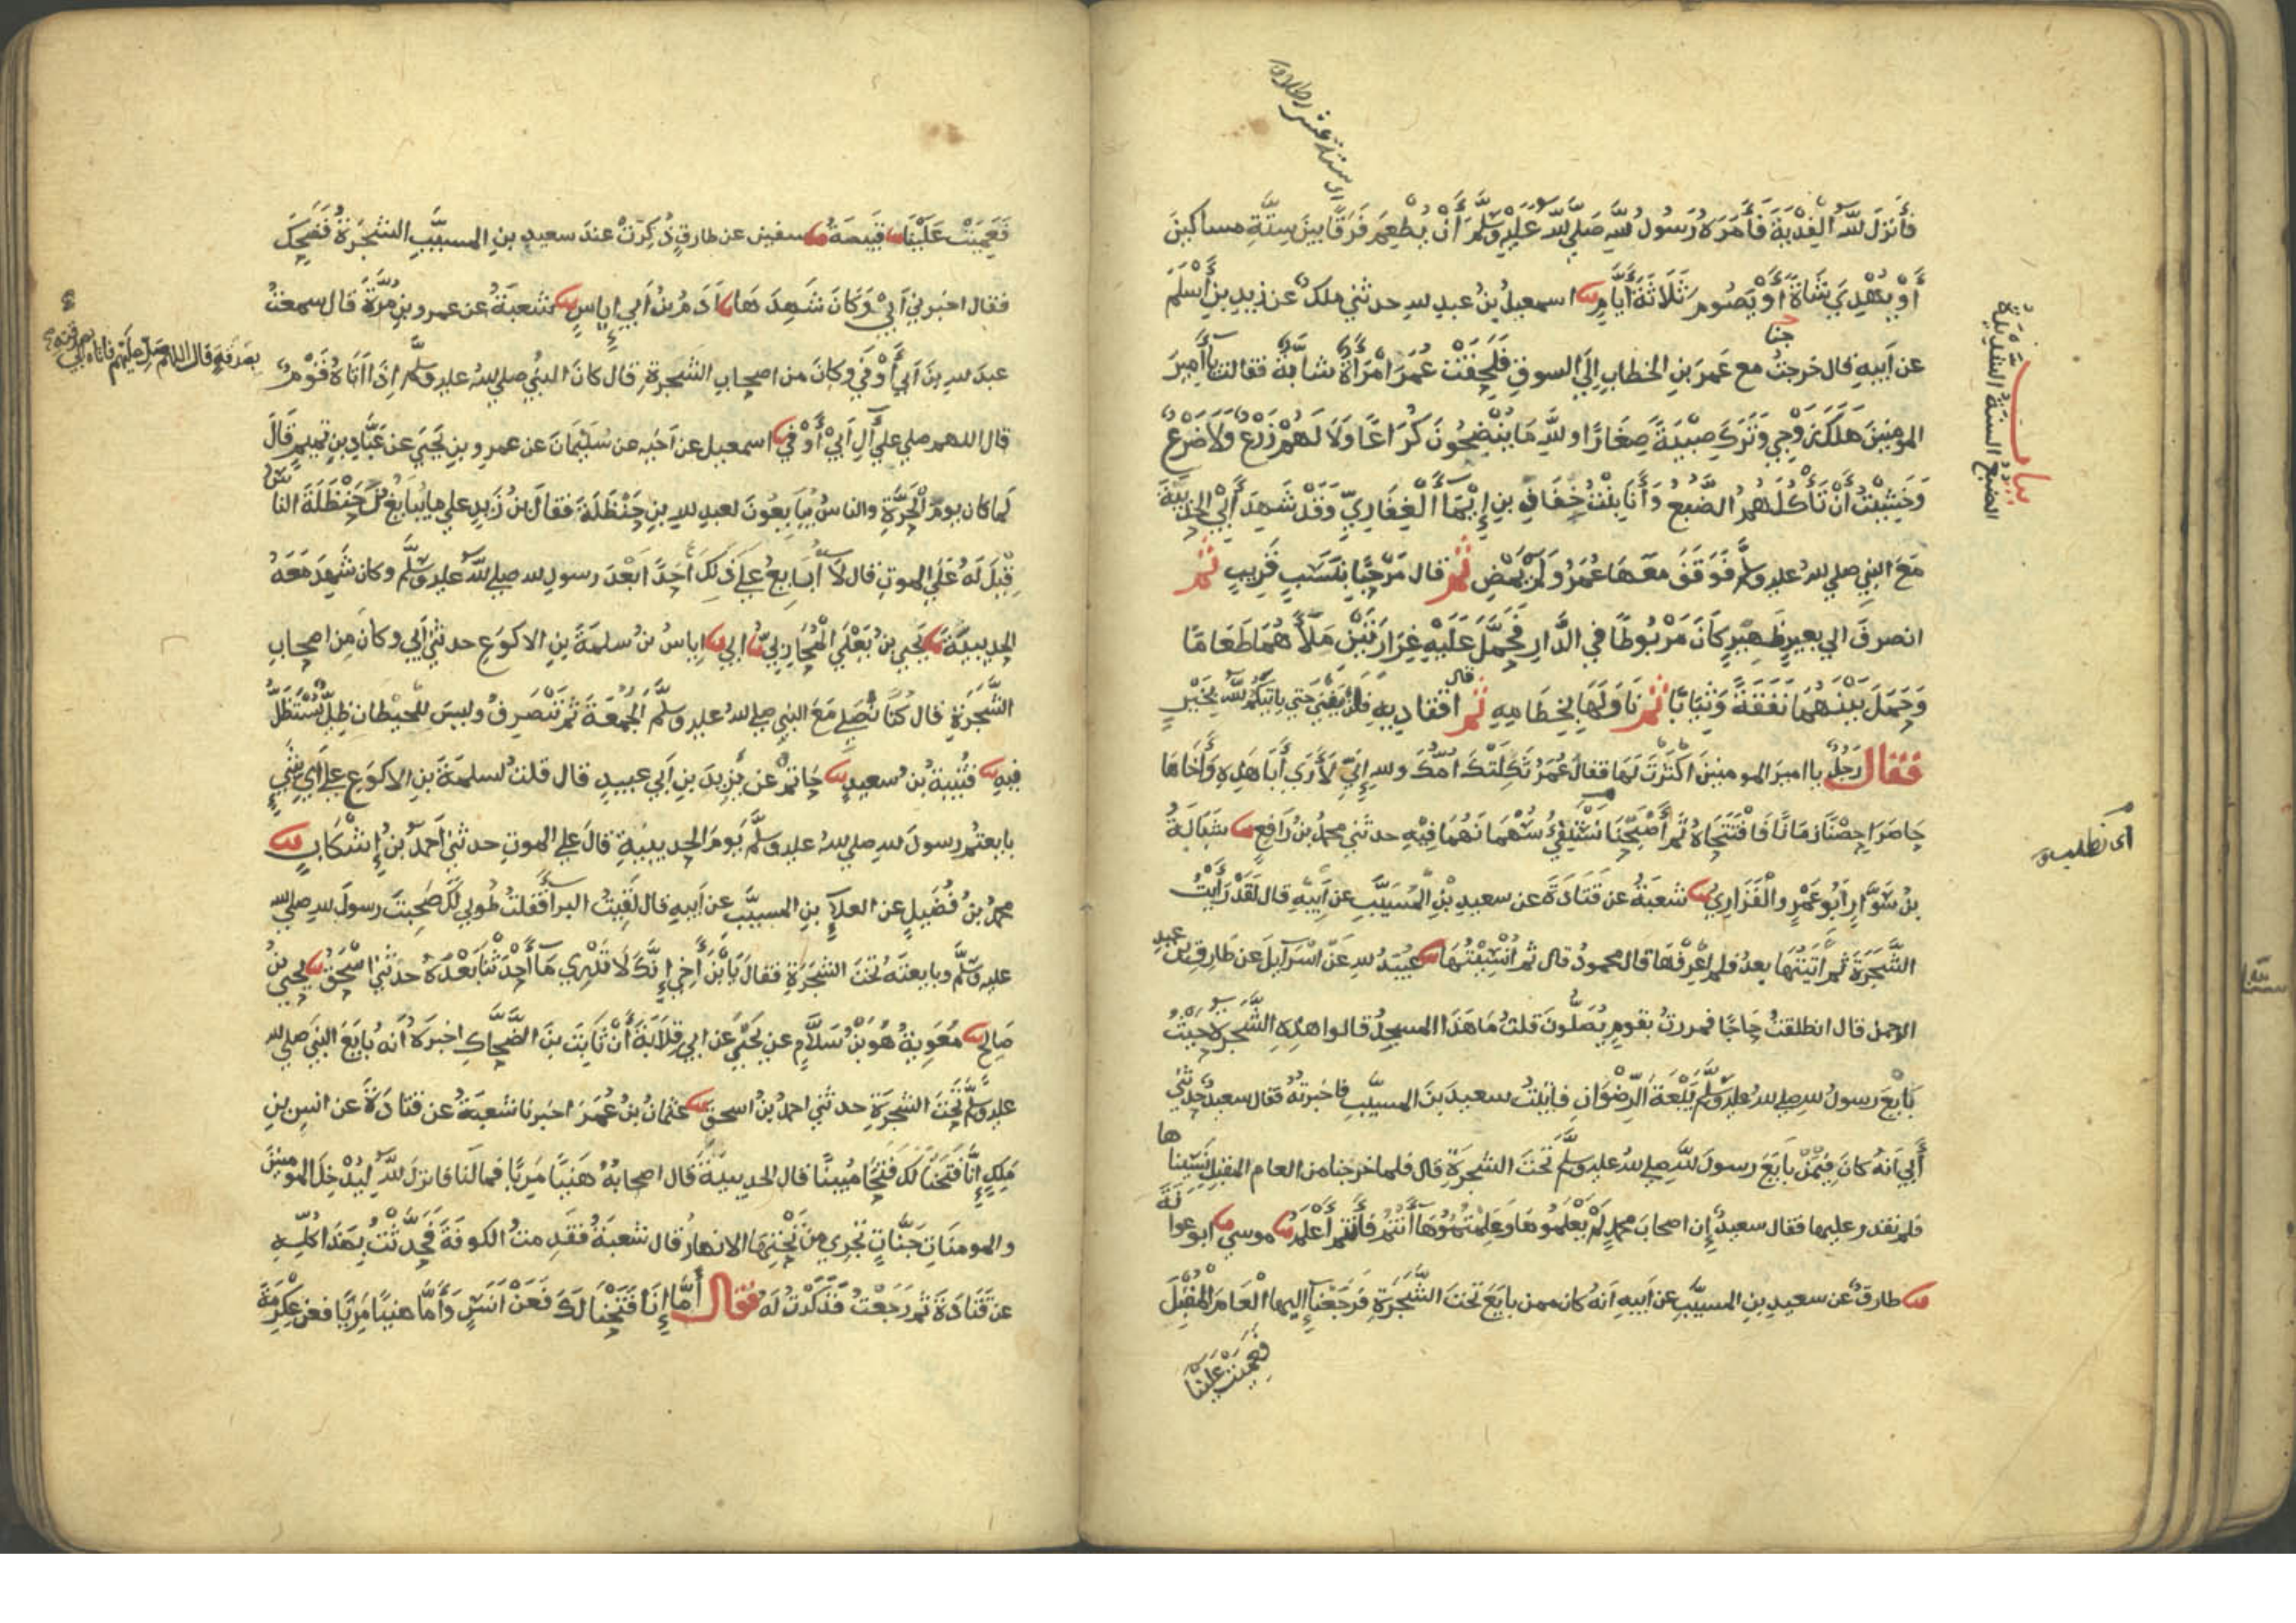 اي ستة عشر رطلا
فأنزل الله الفدية فأمره رسول الله صلى الله عليه وسلم أن يطعم فرقا بين ستة مساكين
أو يهدي شاة أو يصوم ثلاثة أيام اسمعيل بن عبد الله حدثني ملك عن زيد بن أسلم
عن أبيه قال خرجت مع عمر بن الخطاب إلى السوق فلحقت عمر امرأة شابة فقالت يا أمير
المومنين هلك زوجي وترك صبية صغارا والله ما ينضجون كراعا ولا لهم زرع ولا ضرع
وخشيت أن تأكلهم الضبع وأنا بنت خفاف بن إيما الغفاري وقد شهد أبي الحديبية
مع النبي صلى الله عليه وسلم فوقف معها عمر ولم يمض ثم قال مرحبا بنسب قريب ثم
انصرف الى بعير ظهير كان مربوطا في الدار فحمل عليه غرارتين ملأهما طعاما
وحمل بينهما نفقة وثيابا ثم ناولها بخطامه ثم قال اقتاديه فلن يفنى حتى ياتيكم الله بخير
فقال رجل يا امير المومنين اكثرت لها فقال عمر ثكلتك امك والله إني لأرى أبا هذه وأخاها
حاصرا حصنا زمانا فافتتحاه ثم أصبحنا نستفيء سهمانهما فيه حدثني محمد بن رافع شبابة
بن سوار أبو عمرو الفزاري شعبة عن قتادة عن سعيد بن المسيب عن أبيه قال لقد رأيت
الشجرة ثم أتيتها بعد فلم اعرفها قال محمود قال ثم انسيتها عبيد الله عن اسرآيل عن طارق بن عبد
الرحمن قال انطلقت حاجا فمررت بقوم يصلون قلت ما هذا المسجد قالوا هذه الشجرة حيث
بايع رسول الله صلى الله عليه وسلم بيعة الرضوان فاتيت سعيد بن المسيب فاخبرته فقال سعيد حدثني
أبي انه كان فيمن بايع رسول الله صلى الله عليه وسلم تحت الشجرة قال فلما خرجنا من العام المقبل نسيناها
فلم نقدر عليها فقال سعيد إن اصحاب محمد لم يعلموها وعلمتموها أنتم فأنتم أعلم موسى ابو عوانة
طارق عن سعيد بن المسيب عن أبيه انه كان ممن بايع تحت الشجرة فرجعنا إليها العام المقبل
فعميت علينا
بيان
الضبع السنة الشديدة
اي نطلب
فعميت علينا قبيصة سفين عن طارق ذكرت عند سعيد بن المسيب الشجرة فضحك
فقال اخبرني أبي وكان شهدها آدم بن أبي اياس شعبة عن عمرو بن مرة قال سمعت
عبد الله بن أبي أوفى وكان من اصحاب الشجرة قال كان النبي صلى الله عليه وسلم إذا أتاه قوم
بصدقة قال اللهم صل عليهم فاتاه أبي بصدقته
قال اللهم صلي على آل أبي أوفى اسمعيل عن أخيه عن سليمان عن عمرو بن يحيى عن عباد بن تميم قال
لما كان يوم الحرة والناس يبايعون لعبد الله بن حنظلة فقال بن زيد على ما يبايع بن حنظلة الناس
قيل له على الموت قال لا أبايع على ذلك أحدا بعد رسول الله صلى الله عليه وسلم وكان شهد معه
الحديبية يحيى بن يعلى المحاربي ابي إياس بن سلمة بن الاكوع حدثني أبي وكان من اصحاب
الشجرة قال كنا نصلي مع النبي صلى الله عليه وسلم الجمعة ثم ننصرف وليس للحيطان ظل نستظل
فيه قتيبة بن سعيد حاتم عن يزيد بن أبي عبيد قال قلت لسلمة بن الاكوع على أي شيء
بايعتم رسول الله صلى الله عليه وسلم يوم الحديبية قال على الموت حدثني أحمد بن إشكاب
محمد بن فضيل عن العلاء بن المسيب عن أبيه قال لقيت البرأ فقلت طوبى لك صحبت رسول الله صلى الله
عليه وسلم وبايعته تحت الشجرة فقال يا بن أخي إنك لا تدري ما أحدثنا بعده حدثني اسحق يحيى بن
صالح معوية هو بن سلام عن يحيى عن ابي قلابة أن ثابت بن الضحاك اخبره أنه بايع النبي صلى الله
عليه وسلم تحت الشجرة حدثني احمد بن اسحق عثمان بن عمر اخبرنا شعبة عن قتادة عن انس بن
ملك إنا فتحنا لك فتحا مبينا قال الحديبية قال اصحابه هنيا مريا فما لنا فانزل الله ليدخل المومنين
والمومنات جنات تجري من تحتها الانهار قال شعبة فقدمت الكوفة فحدثت بهذا كله
عن قتادة ثم رجعت فذكرت له فقال أما إنا فتحنا لك فعن أنس وأما هنيا مريا فعن عكرمة